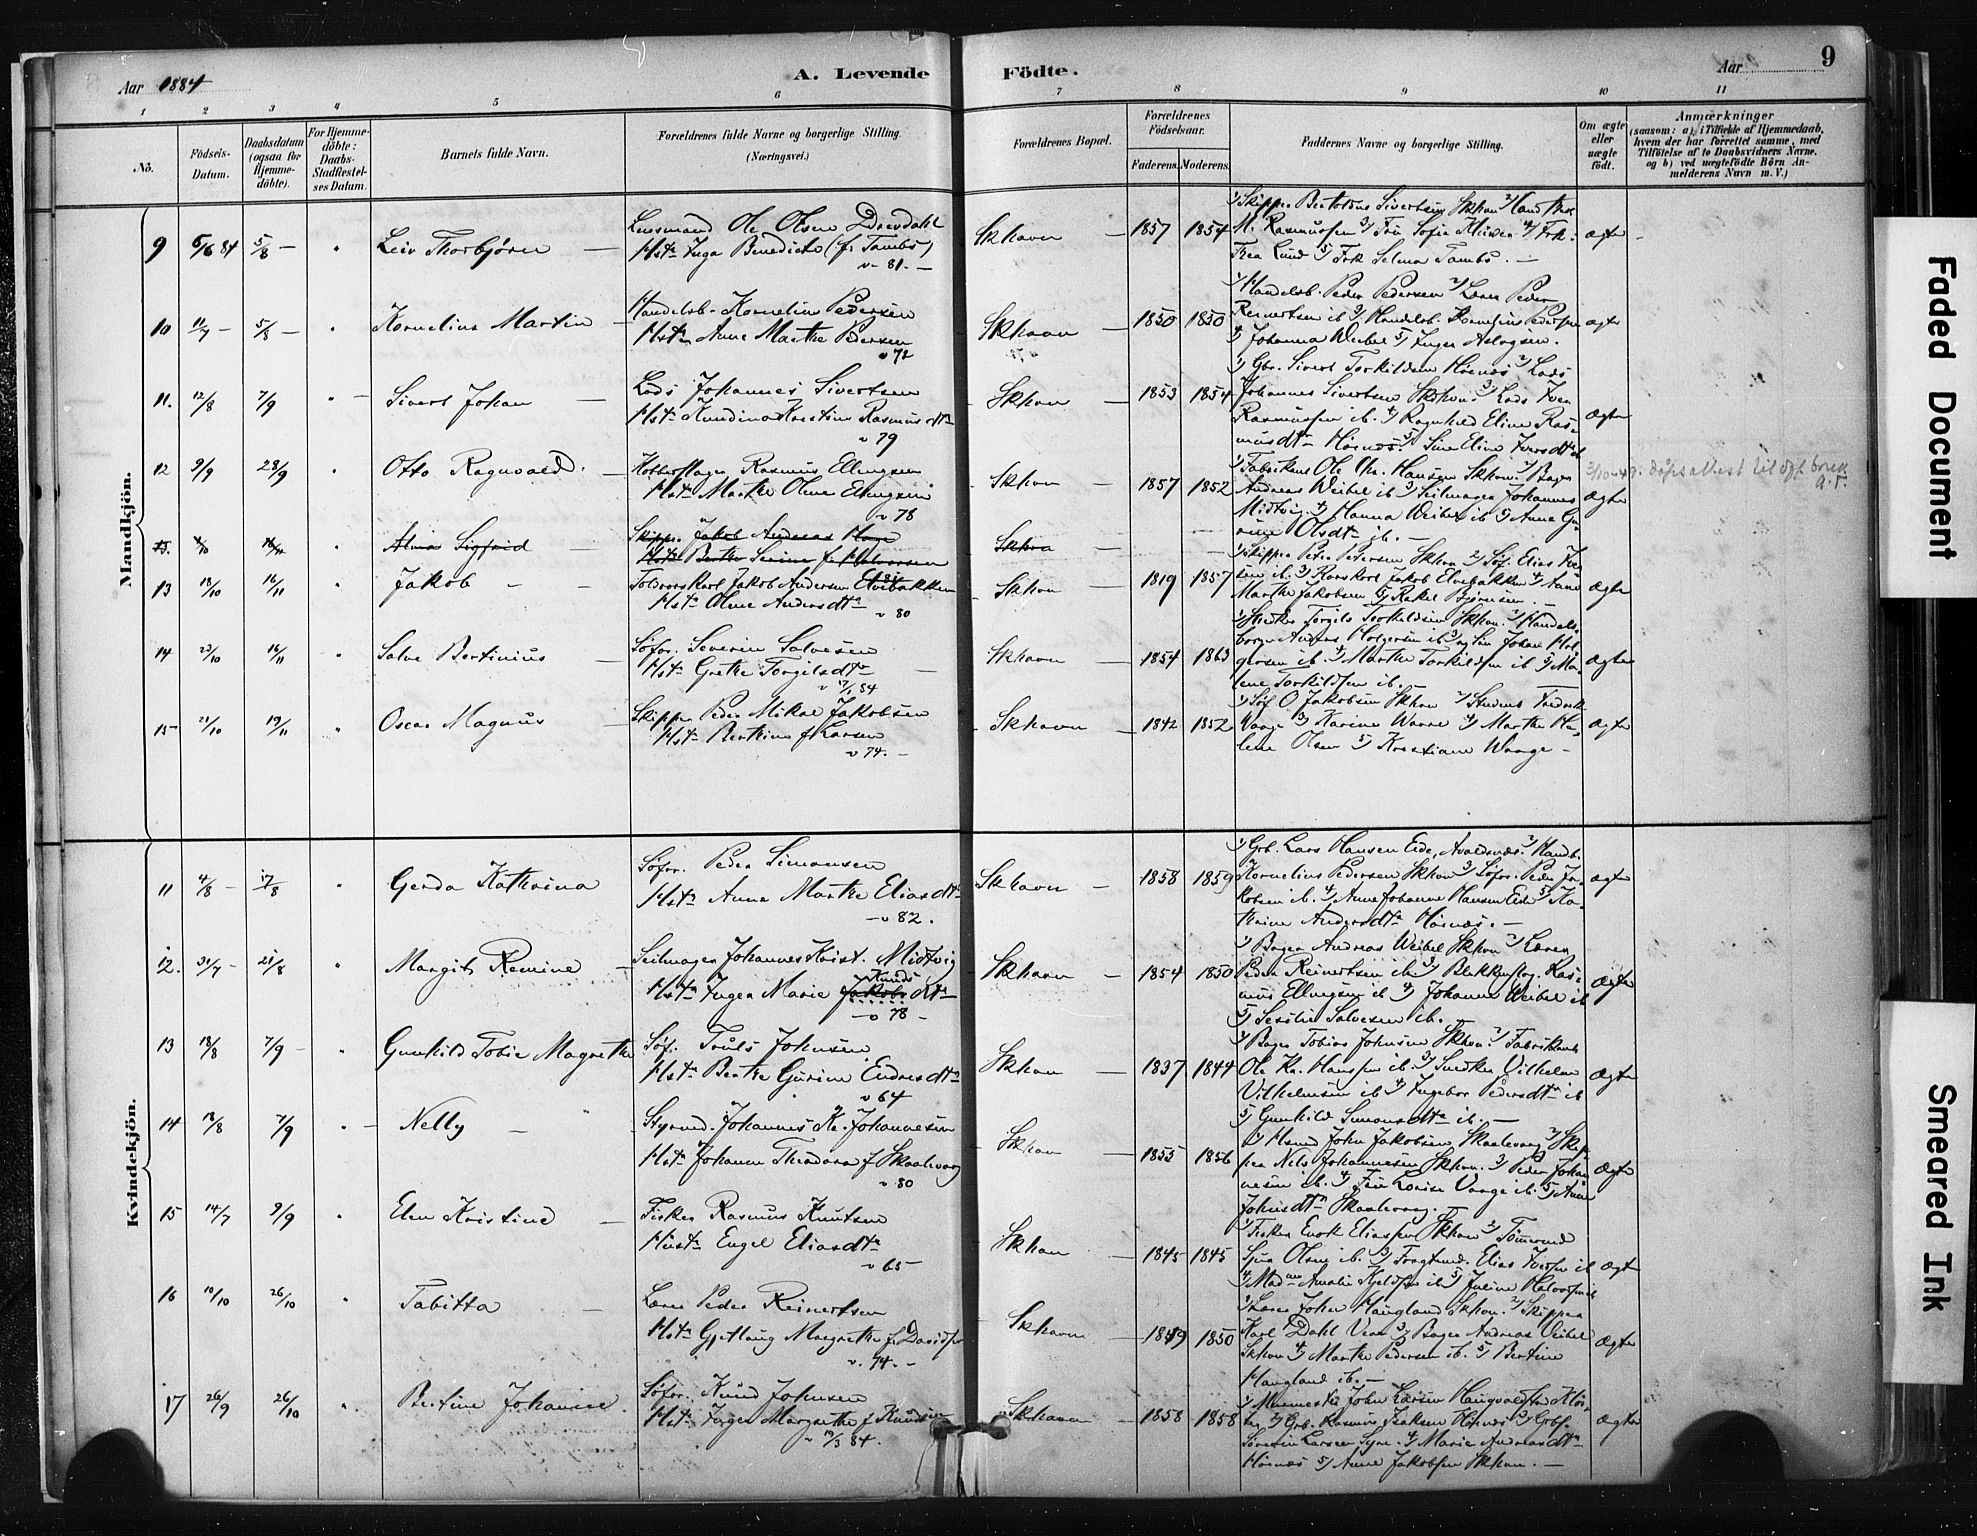 9
Aar 1884
A. Levende Födte.
Aar
1 2 3 4 5 6 7 8 9 10 11
No.
Födsels-Datum.
Daabsdatum (ogsaa for Hjemmedöbte).
For Hjemmedöbte: Daabs-Stadfæstelses Datum.
Barnets fulde Navn.
Forældrenes fulde Navne og borgerlige Stilling. (Næringsvei.)
Forældrenes Bopæl.
Forældrenes Födselsaar.
Faderens. Moderens.
Faddernes Navne og borgerlige Stilling.
Om ægte eller uægte födt.
Anmærkninger
(saasom: a) i Tilfælde af Hjemmedaab, hvem der har forrettet samme, med Tilföielse af to Daabsvidners Navne, og b) ved uægtefödte Börn Anmelderens Navn m. V.)
Mandkjön.
9 5/6 84 5/8 — " Leiv Thorbjörn — Lensmand Ole Olsen
Hst. Inga Benedicte (f. Tambs)
v. 81. —
Skhavn — 1857 1854
M. Rasmussen 3) Fru Sofie
Thea Lund 5) Frk Selma Tambs. —
ægte
10 11/7 — 5/8 — " Kornelius Martin — Handelsb. Kornelius Pedersen
Hst. Anne Marthe Pedersen
v 72
Skhavn — 1850 1850
1) Handelsb. Peder Pedersen 2) Lærer Peder
Reinertsen ib 3) Handelsb. Kornelius Pedersen
4) Johanna Weibel 5) Inger Aslagsen.
ægte
11. 12/8 7/9 " — Sivert Johan — Lods Johannes Sivertsen
Hst. Gundina Kristine Rasmusdtr
v 79
Skhavn — 1853 1854
1) Gbr. Sivert Torkildsen Høines 2) Lods
Johannes Sivertsen Skhavn. 3) Lods Iver
Rasmussen ib. 4) Ragnhild Eline Ras-
musdtr Høines 5) Sine Eline Iversdtr ib
ægte
12 9/9 28/9 " Otto Ragnvald. — Kobberslager Rasmus Ellingsen
Hst. Marthe Oline Ellingsen
v 78
Skhavn — 1857 1852
1) Fabrikant Ole Chr. Hansen Skhavn. 2) Bager
Andreas Weibel ib 3) Seilmager Johannes
Midtvig. 4) Hanna Weibel ib 5) Anne Gu-
rine Olsdtr ib. —
ægte
3/10-49: dåpsattest til off. bruk
13. 4/10 16/11 Alma Sigfrid — Skipper Jakob Andreas Hage
Hst. Berthe Serine f. Halvorsen
Skhavn
13 18/10 16/11 " Jakob — — Toldrorskarl Jakob Andersen Elvebakken
Hst. Oline Andersdtr
v 80
Skhavn — 1819 1857
1) Skipper Peder Pedersen Skhavn 2) Søf. Elias Iver-
sen ib. 3) Rorskarl Jakob Elvebakken 4) Anne
Marthe Jakobsen 5) Rakel Bjørnsen. —
ægte
14 23/10 16/11 " Salve Bertinius — Søfor. Severin Salvesen
Hst. Grethe Torgilsdtr —
v 17/1 84
Skhavn — 1854 1863
1) Smed Torgils Torkildsen Skhavn. 2) Handels-
borger Anders Holgersen ib 3) Johan Hol-
gersen ib. 4) Marthe Torkildsen ib 5) Ma-
lene Torkildsen ib.
ægte
15 21/10 19/11 " Oscar Magnus — Skipper Peder Mikal Jakobsen
Hst. Berthine f. Larsen
v 74. —
Skhavn — 1842 1852
1) Søf O Jakobsen Skhavn 2) Student Fredrik
Waage 3) Karine Waage 4) Marthe Ha-
lene Olsen 5) Kristiane Waage —
ægte
Kvindekjön.
11 4/8 — 17/8 " Gerda Kathrina Søfor. Peder Simonsen
Hst. Anna Marthe Eliasdtr
— v 82.
Skhavn — 1858 1859
1) Grb. Lars Hansen Eide, Avaldsnes. 2) Handb.
Kornelius Pedersen Skhavn 3) Søfor. Peder Ja-
kobsen ib. 4) Anne Johanne Hansen Eide 5) Ka-
thrine Andersdtr Høines. —
ægte
12. 31/7 — 21/8 " Margit Remine — Seilmager Johannes Krist. Midtvig
Hst. Inger Marie Jakobs Knuds dtr
— v 78 —
Skhavn — 1854 1850
1) Bager Andreas Weibel Skhavn 2) Lærer
Peder Reinertsen ib. 3) Blikkenslag. Ras-
mus Ellingsen ib 4) Johanne Weibel ib
5) Sesilie Salvesen ib.
ægte
13 18/8 7/9 — " Gunhild Tobie Magrethe Søf. Truls Johnsen
Hst. Berthe Gurine Endresdtr
v 64
Skhavn — 1837 1844
1) Bager Tobias Johnsen Skhavn. 2) Fabrikant
Ole Kr. Hansen ib. 3) Smed Vilhelm
Vilhelmsen ib 4) Ingebor Pedersdtr ib
5) Gunhild Simonsdtr ib. —
ægte
14 13/8 7/9 " — Nelly — Styrmd. Johannes Kr. Johannesen
Hst. Johanne Theodora f. Skaalevaag
v 80
Skhavn — 1855 1856
1) Hsmd John Jakobsen Skaalevaag 2) Skip-
per Nils Johannesen Skhavn. 3) Peder Johan-
nesen ib. 4) Fru Lovise Vaage ib. 5) Anne
Johnsdtr Skaalevaag.
ægte
15 14/7 9/9 " Elen Kristine — Fisker Rasmus Knutsen
Hust. Engel Eliasdtr
v 65
Skhavn — 1845 1845
1) Fisker Enok Eliassen Skhavn 2) Tømrmd
Sjur Olsen ib. 3) Fragtmd. Elias Iversen ib
4) Amalie Kjeldsen ib 5) Juline Halvorsen ib
ægte
16 10/10 26/10 " Tabitta — Lærer Peder Reinertsen
Hst. Gjertlaug Margrethe f. Davidsen
v. 74. —
Skhavn — 1849 1850
1) Lærer John Haugland Skhavn. 2) Skipper
Karl Dahl 3) Bager Andreas Veibel
Skhavn 4) Marthe Pedersen ib. 5) Bertine
Haugland ib. —
ægte
17 26/9 26/10 " Bertine Johanne. Søfor. Knud Johnsen
Hst. Inger Margrethe f. Knudsen
v 10/3 84.
Skhavn — 1858 1858
1) Murmester John Larsen
2) Grb. Rasmus Isaksen Høines 3) Grbs.
Severin Larsen Syre 4) Marie Andreasdtr
Høines 5) Anne Jakobsen Skhavn. —
ægte
Faded Document
Smeared Ink